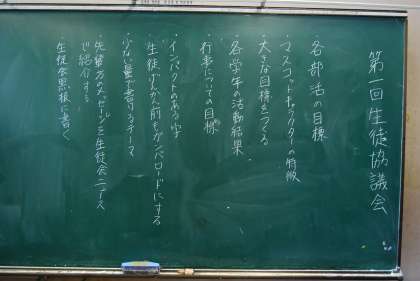 第一回生徒協議会
・各部活の目標
・マスコットキャラクターの特徴
・大きな目標をつくる
・各学年の活動結果
・行事についての目標
・インパクトのある字
・生徒げんかん前をガンバロードにする
・少ない量で書けるテーマ
・先輩方のメッセージを生徒会ニュース
で紹介する
・生徒会黒板に書く